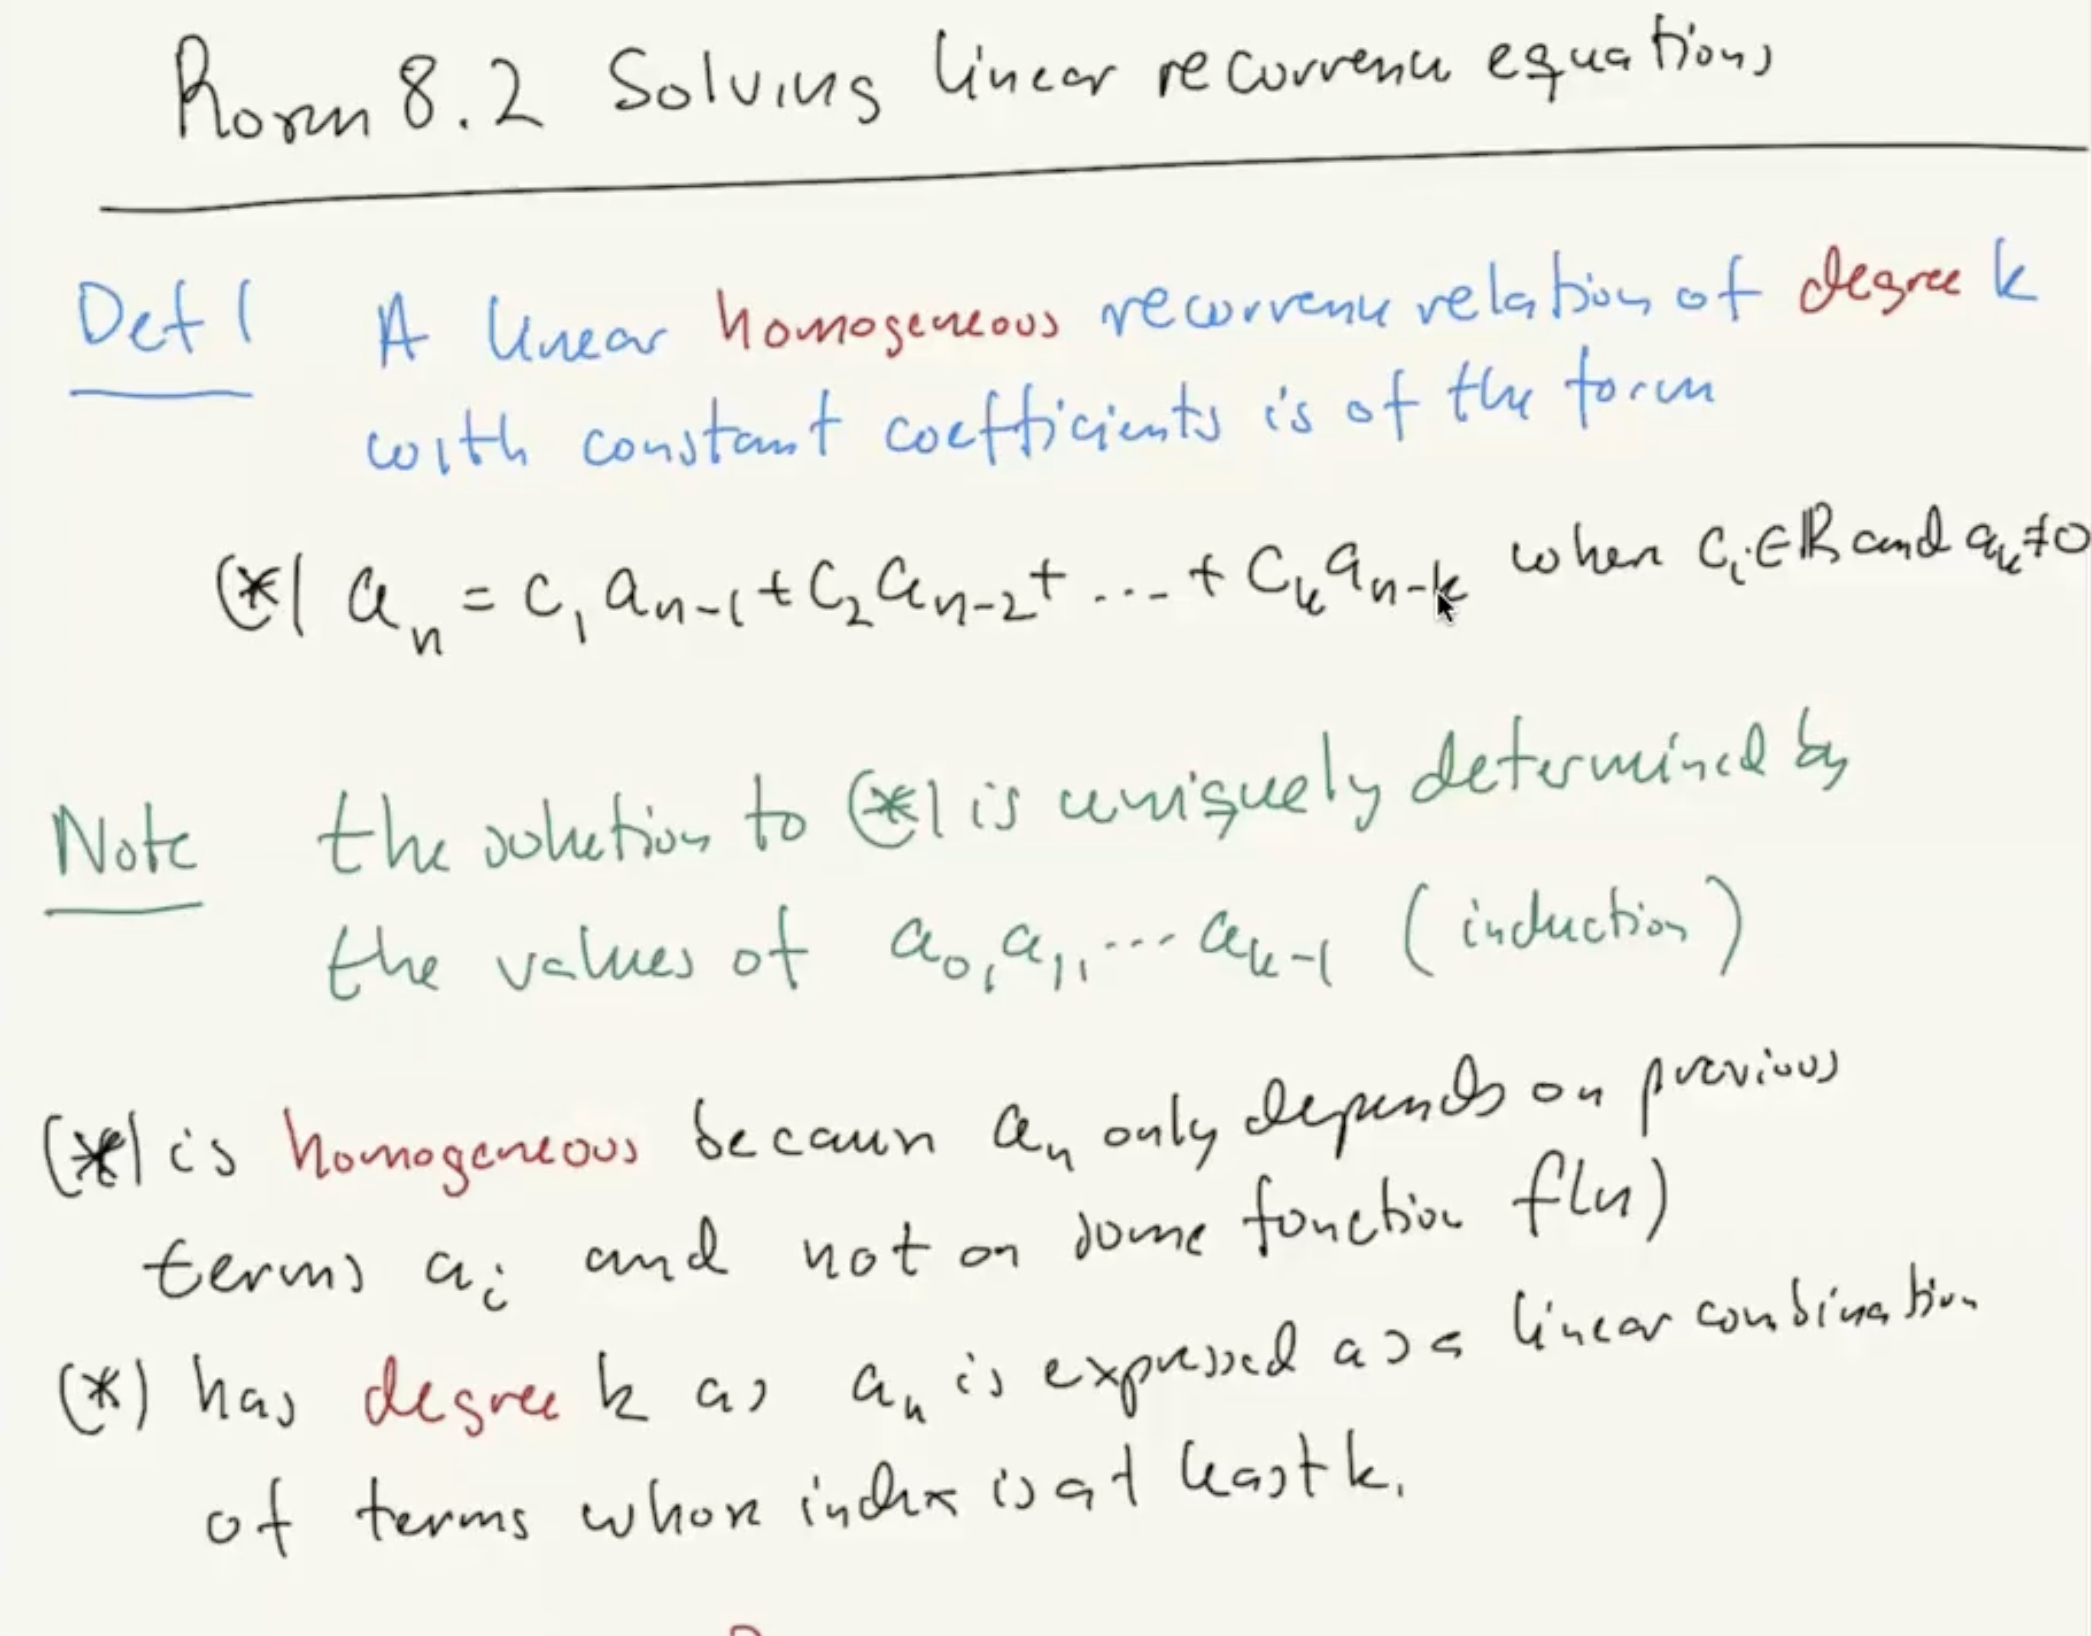 Rosen 8.2 Solving linear recurrence equations
Def 1 A linear homogeneous recurrence relation of degree k
with constant coefficients is of the form
(*) a_n = c_1 a_{n-1} + c_2 a_{n-2} + ... + c_k a_{n-k} when c_i ∈ ℝ and a_k ≠ 0
Note the solution to (*) is uniquely determined by
the values of a_0, a_1, ... a_{k-1} (induction)
(*) is homogeneous because a_n only depends on previous
terms a_i and not on some function f(n)
(*) has degree k as a_n is expressed as a linear combination
of terms whose index is at least k.